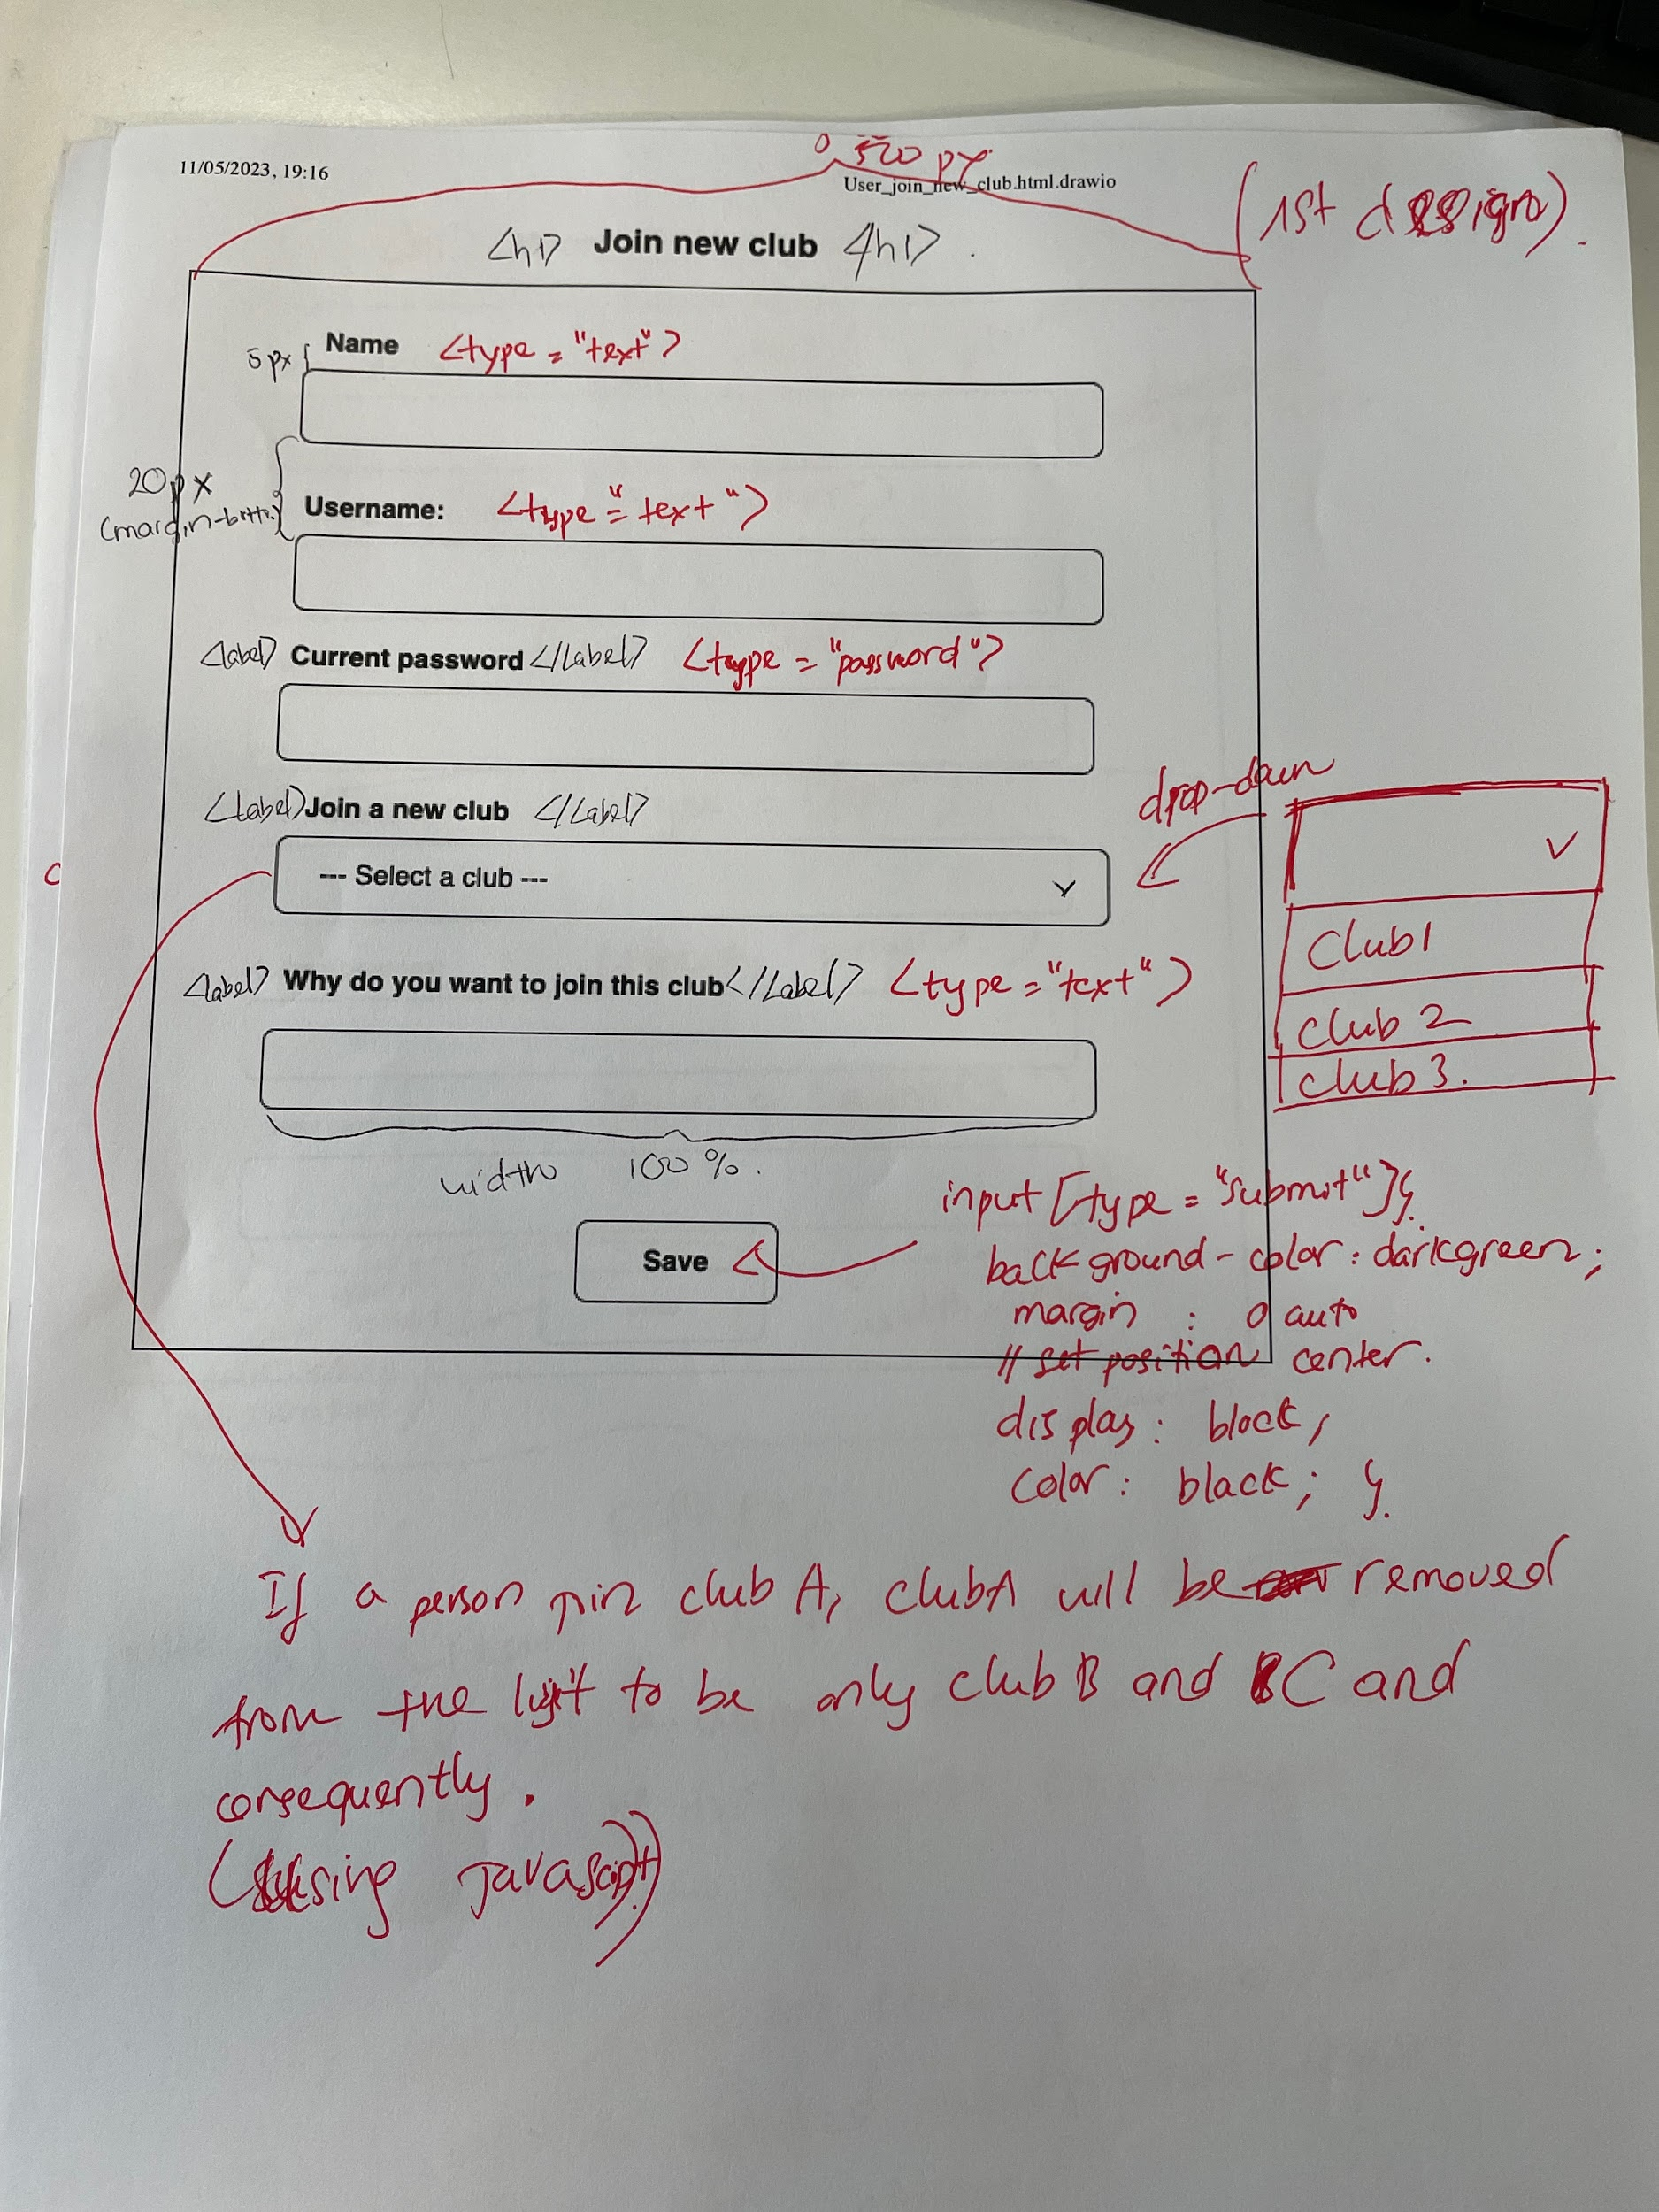 11/05/2023, 19:16
500 px
User_join_new_club.html.drawio
(1st design).
<h1> Join new club </h1>.
Name <type = "text">
5px
20px
Username: <type = "text">
<label> Current password </label> <type = "password">
<label> Join a new club </label>
drop-down
--- Select a club ---
Club 1
<label> Why do you want to join this club </label> <type = "text">
club 2
club 3.
width 100%.
input [type = "submit"] {
Save
background-color: darkgreen;
margin : 0 auto
// set position center.
display: block;
color: black; }
If a person join club A, club A will be removed
from the list to be only club B and C and
consequently.
(using Javascript)